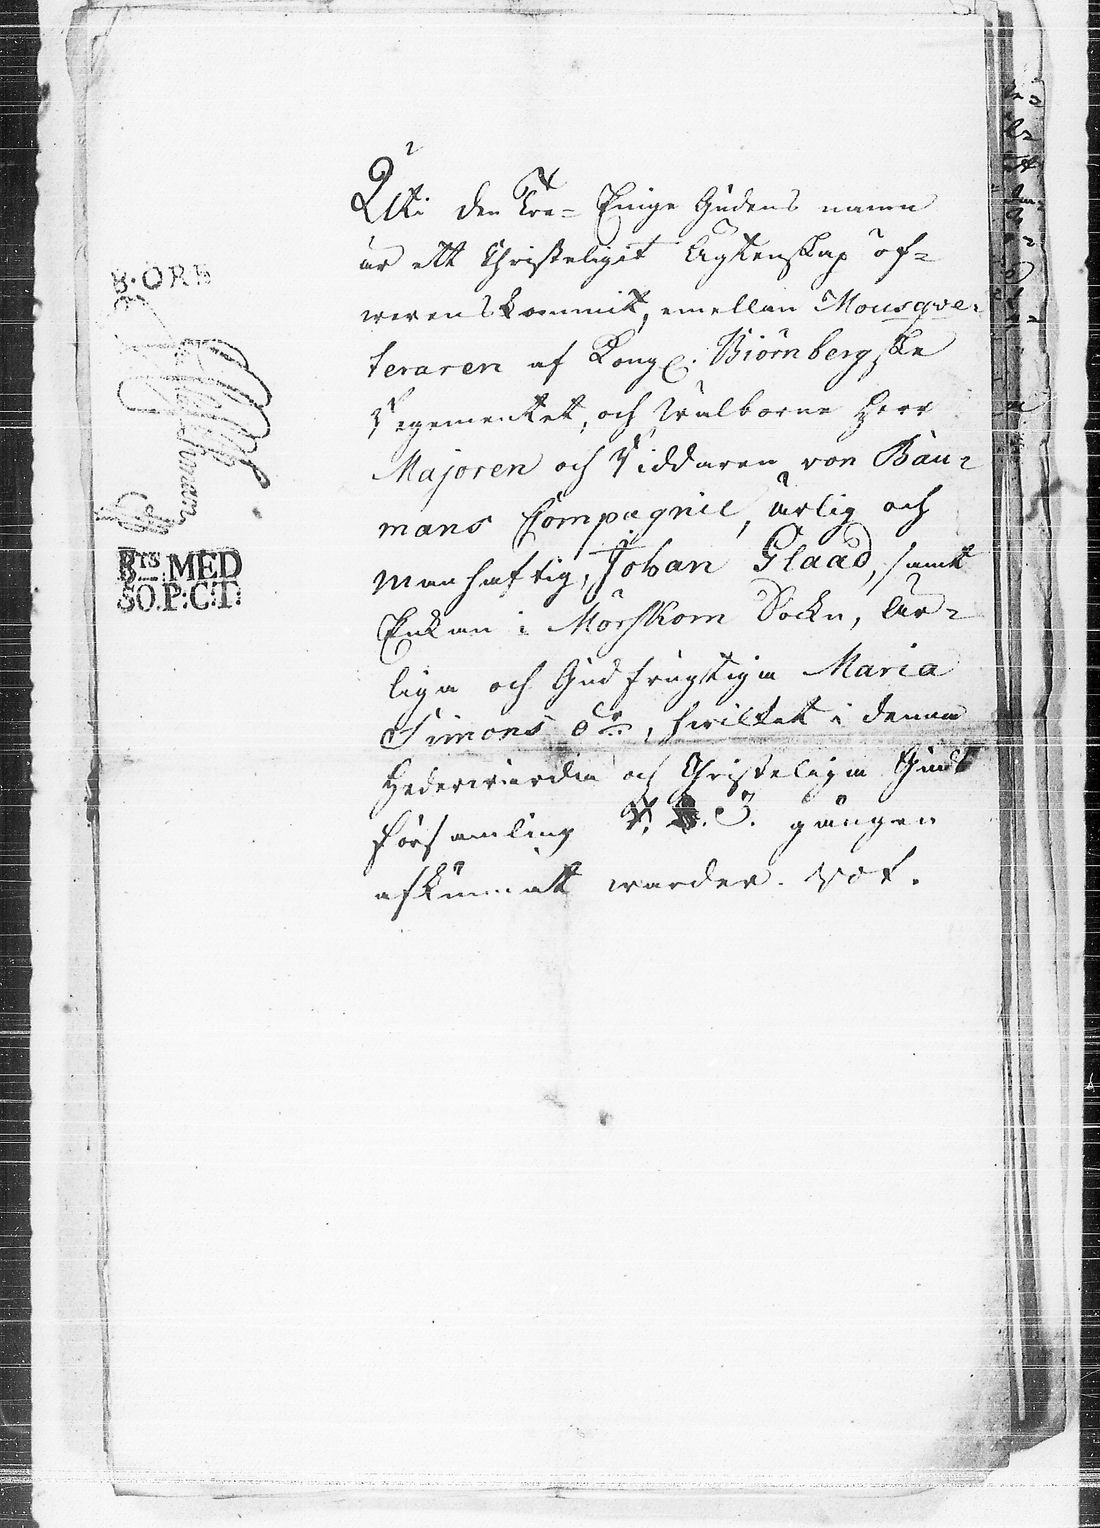 Uti den Tre= Enige Gudens namn
är ett Christeligit Ägtenskap öf=
werenskommit, emellan Mousqve=
teraren af Kongl. Biörnbergske
Regementet, och Wälborne Herr
Majoren och Riddaren von Bau=
mans Compagnie, ärlig och
manhaftig, Johan Glaad, samt
Enkan i Mörskom Sockn, Är=
liga och Gudfrugtiga Maria
Simons dr, hvilket i denna
Hederwärdia och Christeliga Guds
församling 1. 2. 3. gången
afkunnatt warder. Vot.
8. ÖRE
Rts MED
SO.P:C:T: